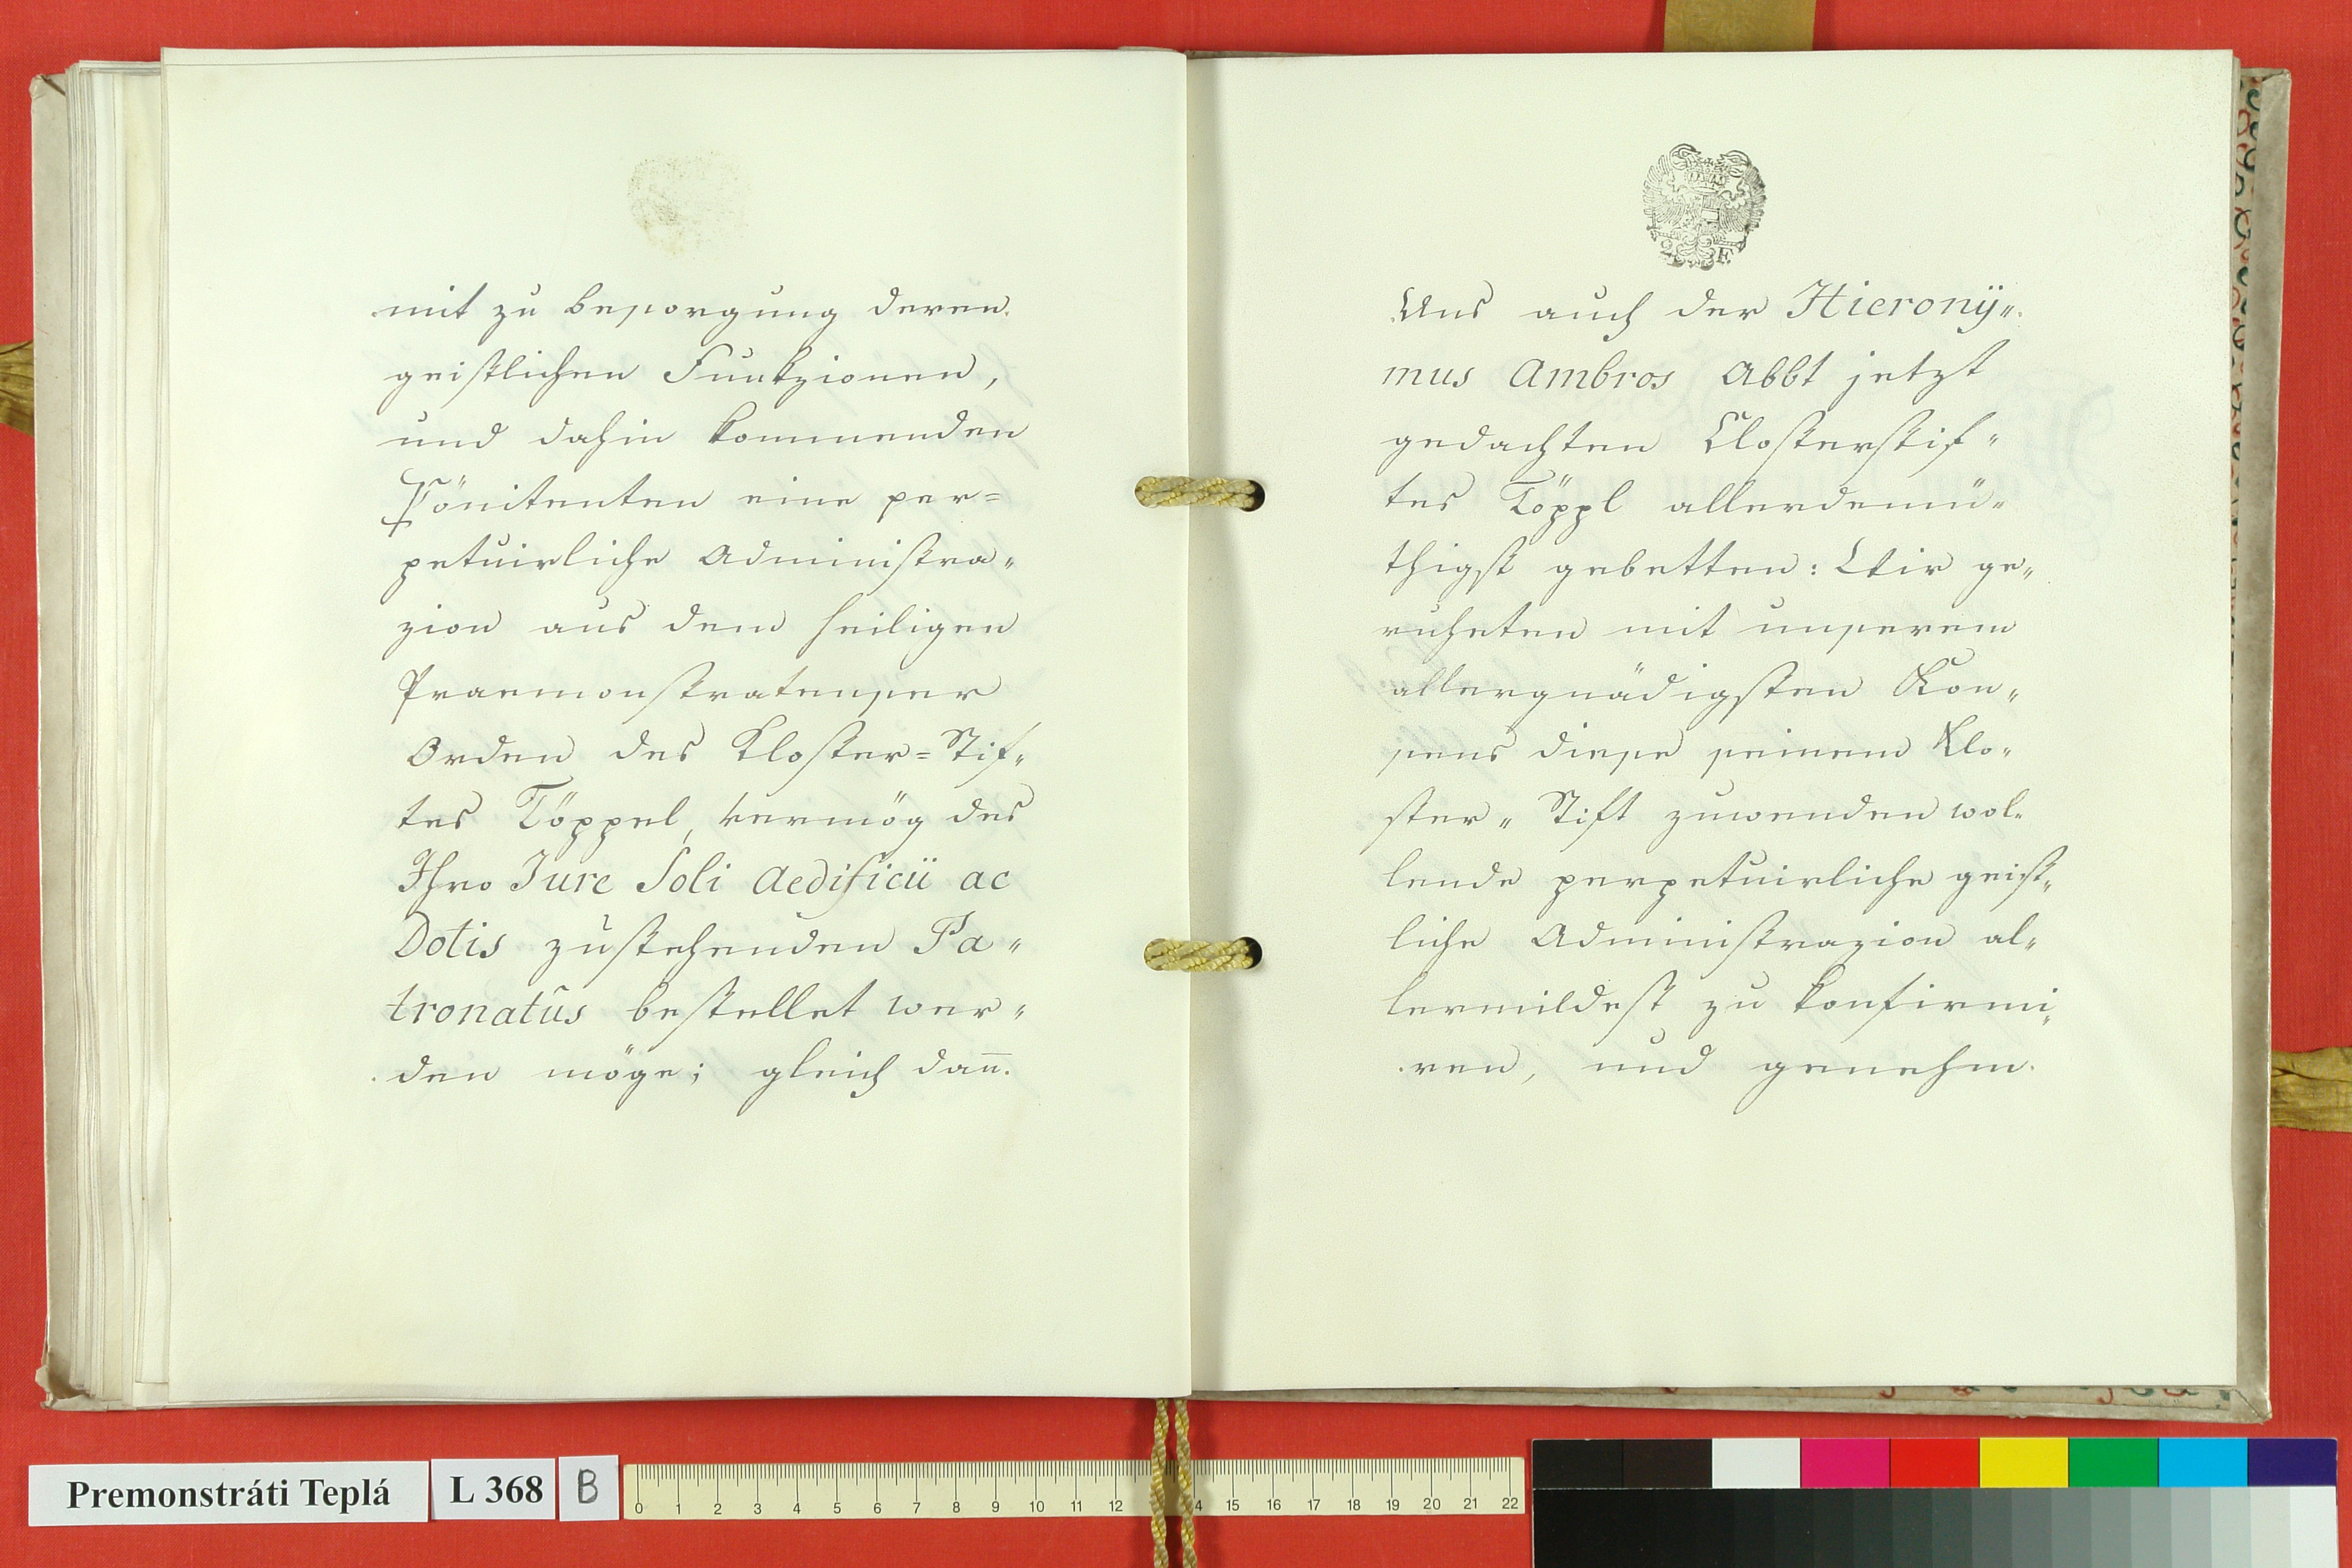 mit zu besorgung deren
geistlichen Funkzionen,
und dahin kommenden
Pönitenten eine per=
petuirliche Administra„
zion aus dem heiligen
Praemonstratenser
Orden des Kloster=Stif„
tes Töppel, vermög des
Ihro Jure Soli Aedificii ac
Dotis zustehenden Pa„
tronatûs bestellet wer„
den möge; gleich dan̄.
Uns auch der Hieronÿ„
mus Ambros Abbt jetzt
gedachten Closterstif„
tes Töppl allerdemü„
thigst gebetten: Wir ge„
ruheten mit unserem
allergnädigsten Kon„
sens diese seinem Klo„
ster„Stift zuwenden wol„
lende perpetuirliche geist„
liche Administrazion al„
lermildest zu konfirmi„
ren, und genehm.
F.
Premonstráti Teplá
L 368
B
0 1 2 3 4 5 6 7 8 9 10 11 12 4 15 16 17 18 19 20 21 22